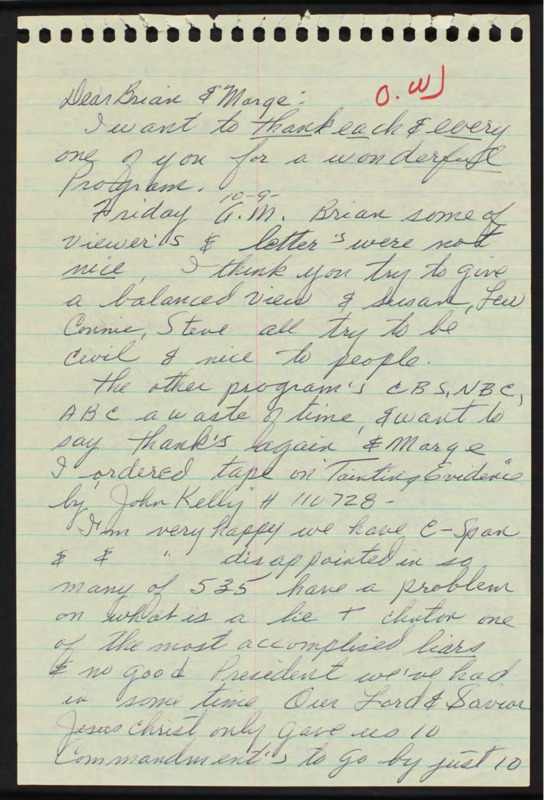 Dear Brian & Marge:
O.W
I want to thank each & every
one of you for a wonderful
Program.
10-9-
Friday A.M. Brian some of
viewer's & letter's were not
nice, I think you try to give
a balanced view & Susan, Lew
Connie, Steve all try to be
civil & nice to people.
The other program's CBS, NBC,
ABC a waste of time, & want to
say thank's again & Marge
I ordered tape on "Tainting Evidence"
by John Kelly # 110728-
I'm very happy we have C-Span
& & " disappointed in so
many of 535 have a problem
on what is a lie + Clinton one
of the most accomplised liars
& no good President we've had
in some time. Our Lord & Savior
Jesus Christ only gave us 10
Commandment's to go by just 10